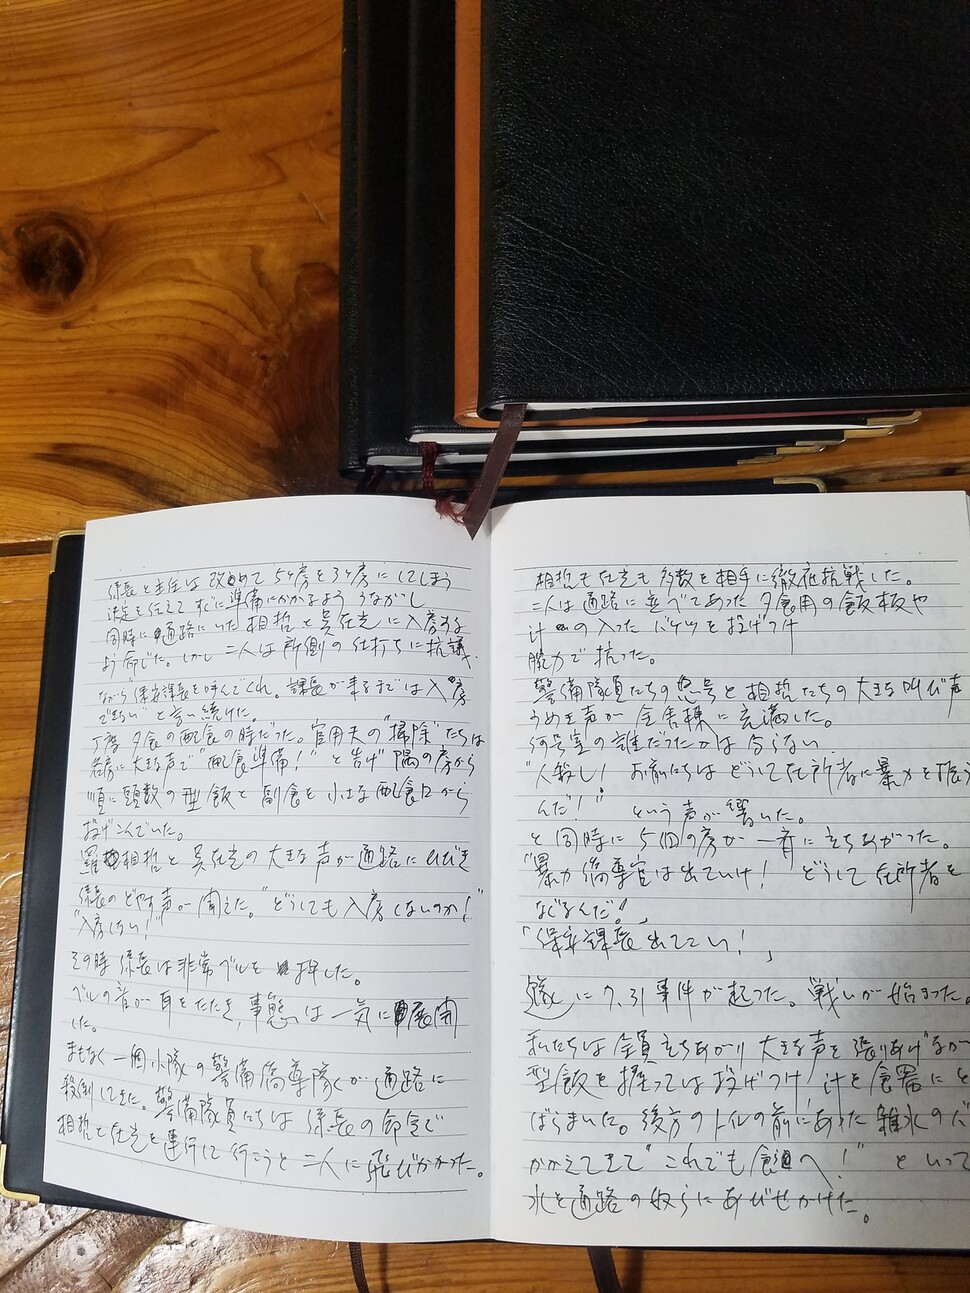 係長と主任は改めて5ケ房を3ケ房にしてしまう
決定を伝えてすぐに準備にかかるよううながし
同時に通路にいた相哲と呉在光に入房する
よう命じた。しかし二人は所側の仕打ちに抗議
ながら"保安課長を呼んでくれ。課長が来るまでは入房
できない"と言い続けた。
丁度夕食の配食の時だった。官用夫の"掃除"たちは
各房に大きな声で"配食準備!"と告げ 隅の房から
順に頭数の型飯と副食を小さな配食口から
投げこんでいた。
羅相哲と呉在光の大きな声が通路にひびき
係長のどやす声が聞えた。"どうしても入房しないのか!"
"入房しない!"
その時係長は非常ベルを押した。
ベルの音が耳をたたき、事態は一気に展開
した。
まもなく一個小隊の警備矯導隊が通路に
殺倒してきた。警備隊員たちは係長の命令で
相哲と在光を連行して行こうと二人に飛びかかった。
相哲も在光も多数を相手に徹底抗戦した。
二人は通路に並べてあった夕食用の飯板や
汁の入ったバケツを投げつけ
腕力で抗った。
警備隊員たちの怒号と相哲たちの大きな叫び声
うめき声が全舎棟に充満した。
何号室の誰だったかは分らない。
"人殺し! お前たちはどうして在所者に暴力を振う
んだ!"という声が響いた。
と同時に5個の房が一斉に立ちあがった。
"暴力矯導官は出ていけ!""どうして在所者を
なぐるんだ!"
「保安課長出てこい!」
遂に7.31事件が起った。戦いが始まった。
私たちは全員立ちあがり大きな声を張りあげなが
型飯を握っては投げつけ、汁を食器にと
ばらまいた。後方のトイレの前にあった雑水の
かかえてきて"これでも食へ!"といって
水を通路の奴らにあびせかけた。